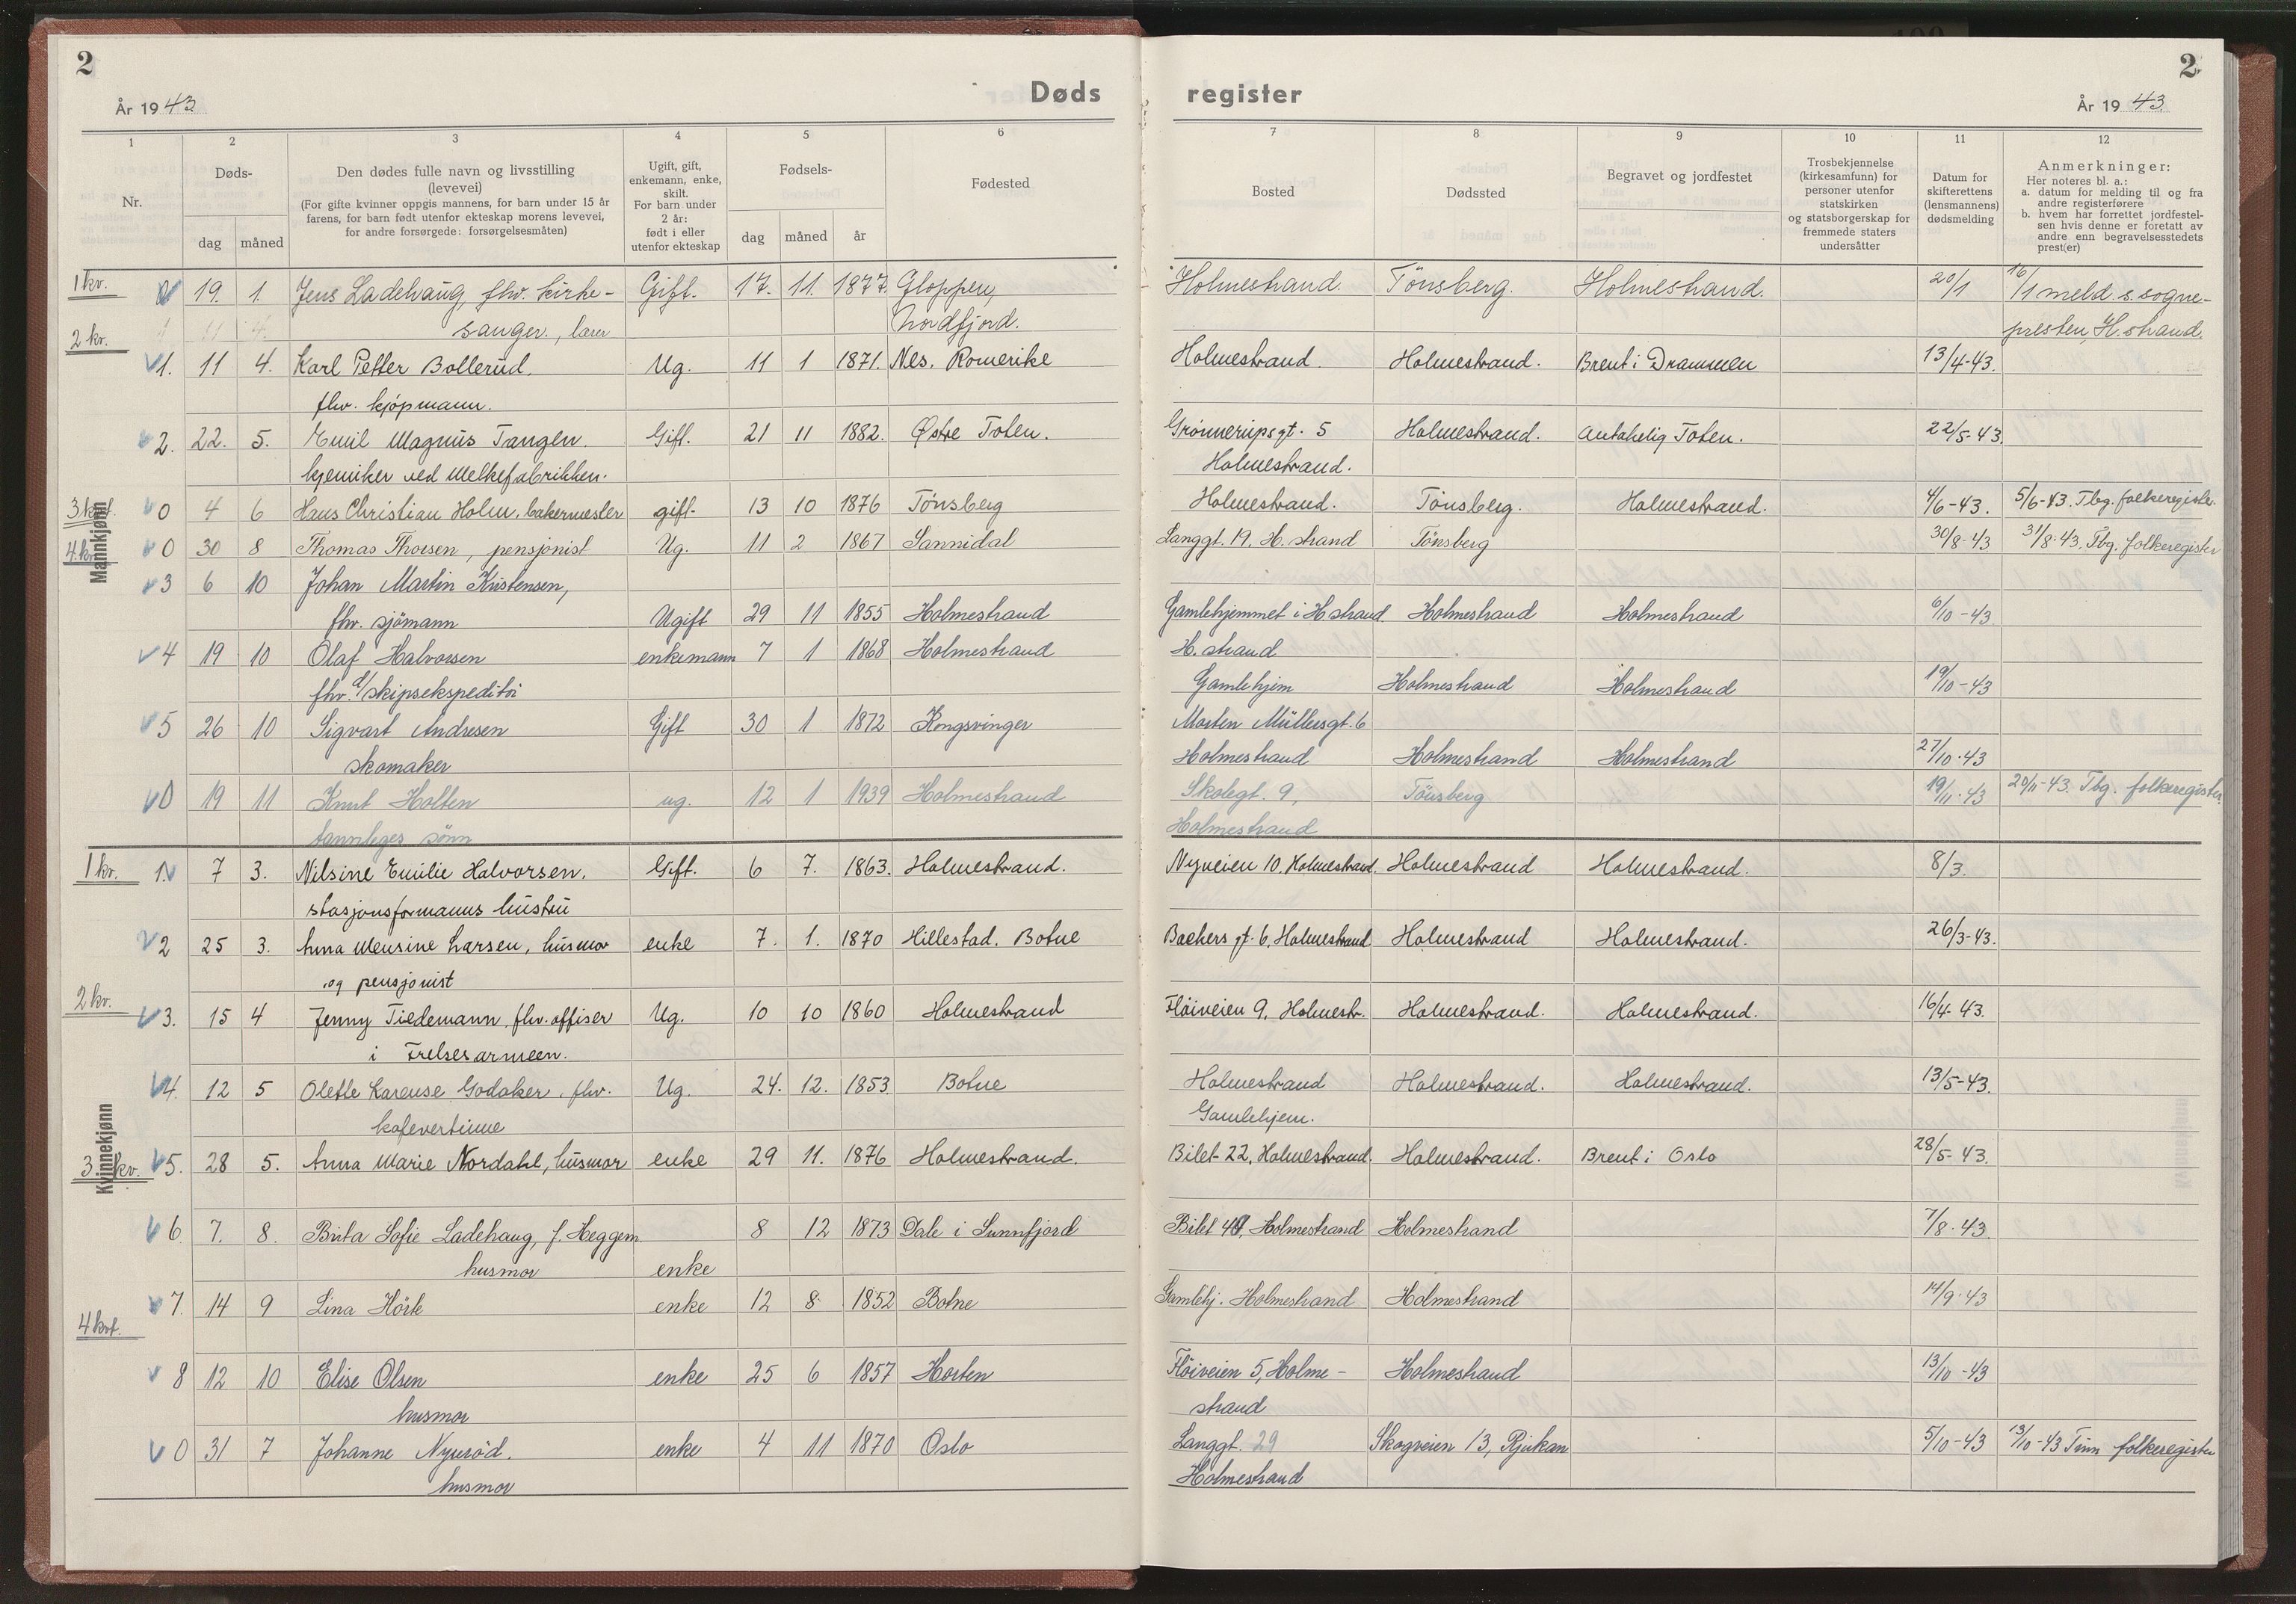 2
År 1943
Døds
1
2
3
4
5
6
Nr.
Døds-
dag
måned
Den dødes fulle navn og livsstilling
(levevei)
(For gifte kvinner oppgis mannens, for barn under 15 år
farens, for barn født utenfor ekteskap morens levevei,
for andre forsørgede: forsørgelsesmåten)
Ugift, gift,
enkemann, enke,
skilt.
For barn under
2 år:
født i eller
utenfor ekteskap
Fødsels-
dag
måned
år
Fødested
Mannkjønn
1 kv.
19. 1. Jens Ladehaug, fhv. kirke- Gift. 17. 11. 1877. Gloppen,
sanger, lærer Nordfjord.
2 kv.
1. 11 4. Karl Petter Bollerud. Ug. 11 1 1871. Nes, Romerike
fhv. kjøpmann.
2. 22. 5. Emil Magnus Tangen. Gift. 21 11 1882. Østre Toten.
kjemiker ved Melkefabrikken.
0 4 6 Hans Christian Holm, bakermester gift. 13 10 1876 Tønsberg
0 30 8 Thomas Thorsen, pensjonist Ug. 11 2 1867 Sannidal
3 6 10 Johan Martin Kristensen,
fhv. sjömann Ugift 29 11 1855 Holmestrand
4 19 10 Olaf Halvorsen enkemann 7 1 1868 Holmestrand
fhv. d/skipsekspeditör
5 26 10 Sigvart Andresen Gift 30 1 1872 Kongsvinger
skomaker
0 19 11 Knut Holten ug. 12 1 1939 Holmestrand
tannleges sønn
Kvinnekjønn
1 kv. 1. 7 3. Nilsine Emilie Halvorsen, Gift. 6 7. 1863. Holmestrand.
stasjonsformanns hustru
2 25 3. Anna Mensine Larsen, husmor enke 7. 1. 1870 Hillestad. Botne
og pensjonist
2 kv.
3. 15 4 Jenny Tiedemann, fhv. offiser Ug. 10 10 1860 Holmestrand
i Frelsesarmeen.
4. 12 5 Olette Karense Godaker, fhv. Ug. 24. 12. 1853. Botne
kafevertinne
3. kv. 5. 28 5. Anna Marie Nordahl, husmor enke 29 11. 1876 Holmestrand.
6 7. 8. Brita Sofie Ladehaug, f. Heggem 8 12 1873 Dale i Sunnfjord
husmor enke
7. 14 9 Lina Hörte enke 12 8 1852 Botne
4 kvt.
8 12 10 Elise Olsen enke 25 6 1857 Horten
husmor
0 31 7 Johanne Nyuröd. enke 4 11 1870 Oslo
husmor
register
2
År 1943
7
8
9
10
11
12
Bosted
Dødssted
Begravet og jordfestet
Trosbekjennelse
(kirkesamfunn) for
personer utenfor
statskirken
og statsborgerskap for
fremmede staters
undersåtter
Datum for
skifterettens
(lensmannens)
dødsmelding
Anmerkninger:
Her noteres bl. a.:
a. datum for melding til og fra
andre registerførere
b. hvem har forrettet jordfestel-
sen hvis denne er foretatt av
andre enn begravelsesstedets
prest(er)
Holmestrand. Tönsberg. Holmestrand. 20/1 16/1 meld. s. sogne-
presten, H.strand.
Holmestrand. Holmestrand. Brent i Drammen 13/4-43.
Grønnerupsgt. 5 Holmestrand. Antakelig Toten. 22/5-43.
Holmestrand.
Holmestrand. Tønsberg. Holmestrand. 4/6-43. 5/6-43. Tbg. folkeregister.
Langgt. 19. H.strand Tönsberg 30/8-43 31/8-43. Tbg. folkeregister
Gamlehjemmet i H.strand Holmestrand Holmestrand 6/10-43
H.strand
Gamlehjem Holmestrand Holmestrand 19/10-43
Morten Müllersgt. 6
Holmestrand Holmestrand Holmestrand 27/10.43
Skolegt. 9, Tönsberg 19/11.43 20/11-43. Tbg. folkeregister.
Holmestrand
Nyveien 10, Holmestrand. Holmestrand Holmestrand. 8/3.
Backers gt. 6, Holmestrand Holmestrand Holmestrand. 26/3-43.
Fløiveien 9, Holmestr. Holmestrand. Holmestrand. 16/4-43.
Holmestrand Holmestrand. Holmestrand. 13/5-43.
Gamlehjem.
Bilet 22, Holmestrand. Holmestrand. Brent i Oslo 28/5-43.
Bilet 4, Holmestrand Holmestrand 7/8.43.
Gamlehj. Holmestrand Holmestrand 14/9.43
Flöiveien 5, Holme- Holmestrand 13/10-43
strand
Langgt. 29 Skogveien 13, Rjukan 5/10-43 13/10-43 Tinn folkeregister
Holmestrand